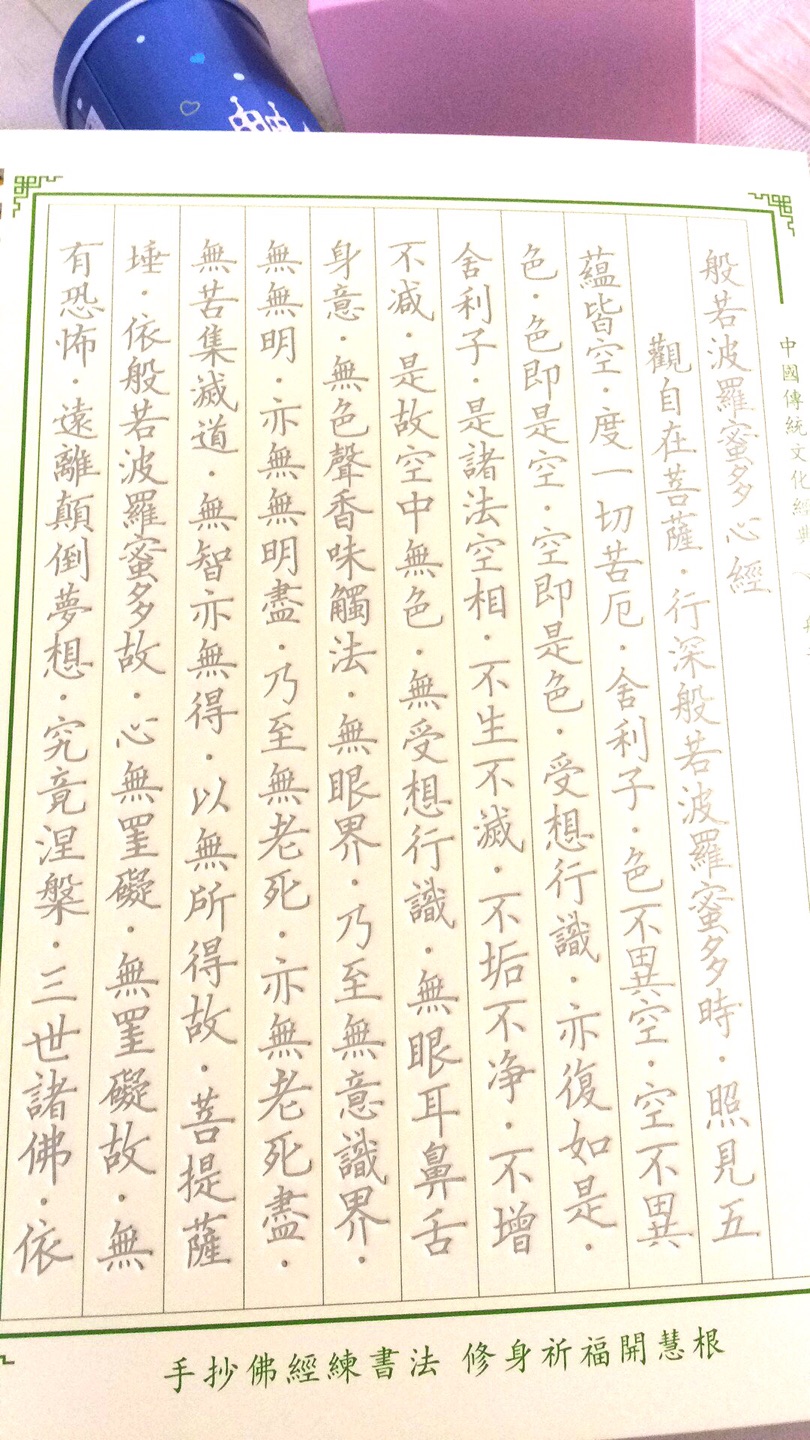 中國傳統文化經典
般若波羅蜜多心經
觀自在菩薩·行深般若波羅蜜多時·照見五
蘊皆空·度一切苦厄·舍利子·色不異空·空不異
色·色即是空·空即是色·受想行識·亦復如是·
舍利子·是諸法空相·不生不滅·不垢不净·不增
不减·是故空中無色·無受想行識·無眼耳鼻舌
身意·無色聲香味觸法·無眼界·乃至無意識界·
無無明·亦無無明盡·乃至無老死·亦無老死盡·
無苦集滅道·無智亦無得·以無所得故·菩提薩
埵·依般若波羅蜜多故·心無罣礙·無罣礙故·無
有恐怖·遠離顛倒夢想·究竟涅槃·三世諸佛·依
手抄佛經練書法 修身祈福開慧根